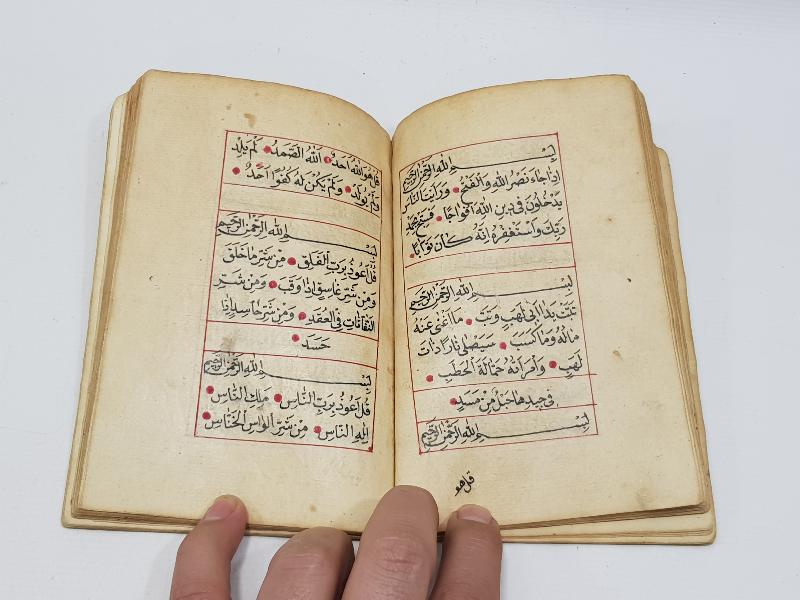 بِسْمِ اللهِ الرَّحْمٰنِ الرَّحِيمِ
اِذَا جَاءَ نَصْرُ اللهِ وَالْفَتْحُ وَرَاَيْتَ النَّاسَ
يَدْخُلُونَ فِي دِينِ اللهِ اَفْوَاجًا فَسَبِّحْ بِحَمْدِ
رَبِّكَ وَاسْتَغْفِرْهُ اِنَّهُ كَانَ تَوَّابًا
بِسْمِ اللهِ الرَّحْمٰنِ الرَّحِيمِ
تَبَّتْ يَدَا اَبِي لَهَبٍ وَتَبَّ مَا اَغْنٰى عَنْهُ
مَالُهُ وَمَا كَسَبَ سَيَصْلٰى نَارًا ذَاتَ
لَهَبٍ وَامْرَاَتُهُ حَمَّالَةَ الْحَطَبِ
فِي جِيدِهَا حَبْلٌ مِنْ مَسَدٍ
بِسْمِ اللهِ الرَّحْمٰنِ الرَّحِيمِ
قل هو
قُلْ هُوَ اللهُ اَحَدٌ اَللهُ الصَّمَدُ لَمْ يَلِدْ
وَلَمْ يُولَدْ وَلَمْ يَكُنْ لَهُ كُفُوًا اَحَدٌ
بِسْمِ اللهِ الرَّحْمٰنِ الرَّحِيمِ
قُلْ اَعُوذُ بِرَبِّ الْفَلَقِ مِنْ شَرِّ مَا خَلَقَ
وَمِنْ شَرِّ غَاسِقٍ اِذَا وَقَبَ وَمِنْ شَرِّ
النَّفَّاثَاتِ فِي الْعُقَدِ وَمِنْ شَرِّ حَاسِدٍ اِذَا
حَسَدَ
بِسْمِ اللهِ الرَّحْمٰنِ الرَّحِيمِ
قُلْ اَعُوذُ بِرَبِّ النَّاسِ مَلِكِ النَّاسِ
اِلٰهِ النَّاسِ مِنْ شَرِّ الْوَاسِ الْخَنَّاسِ